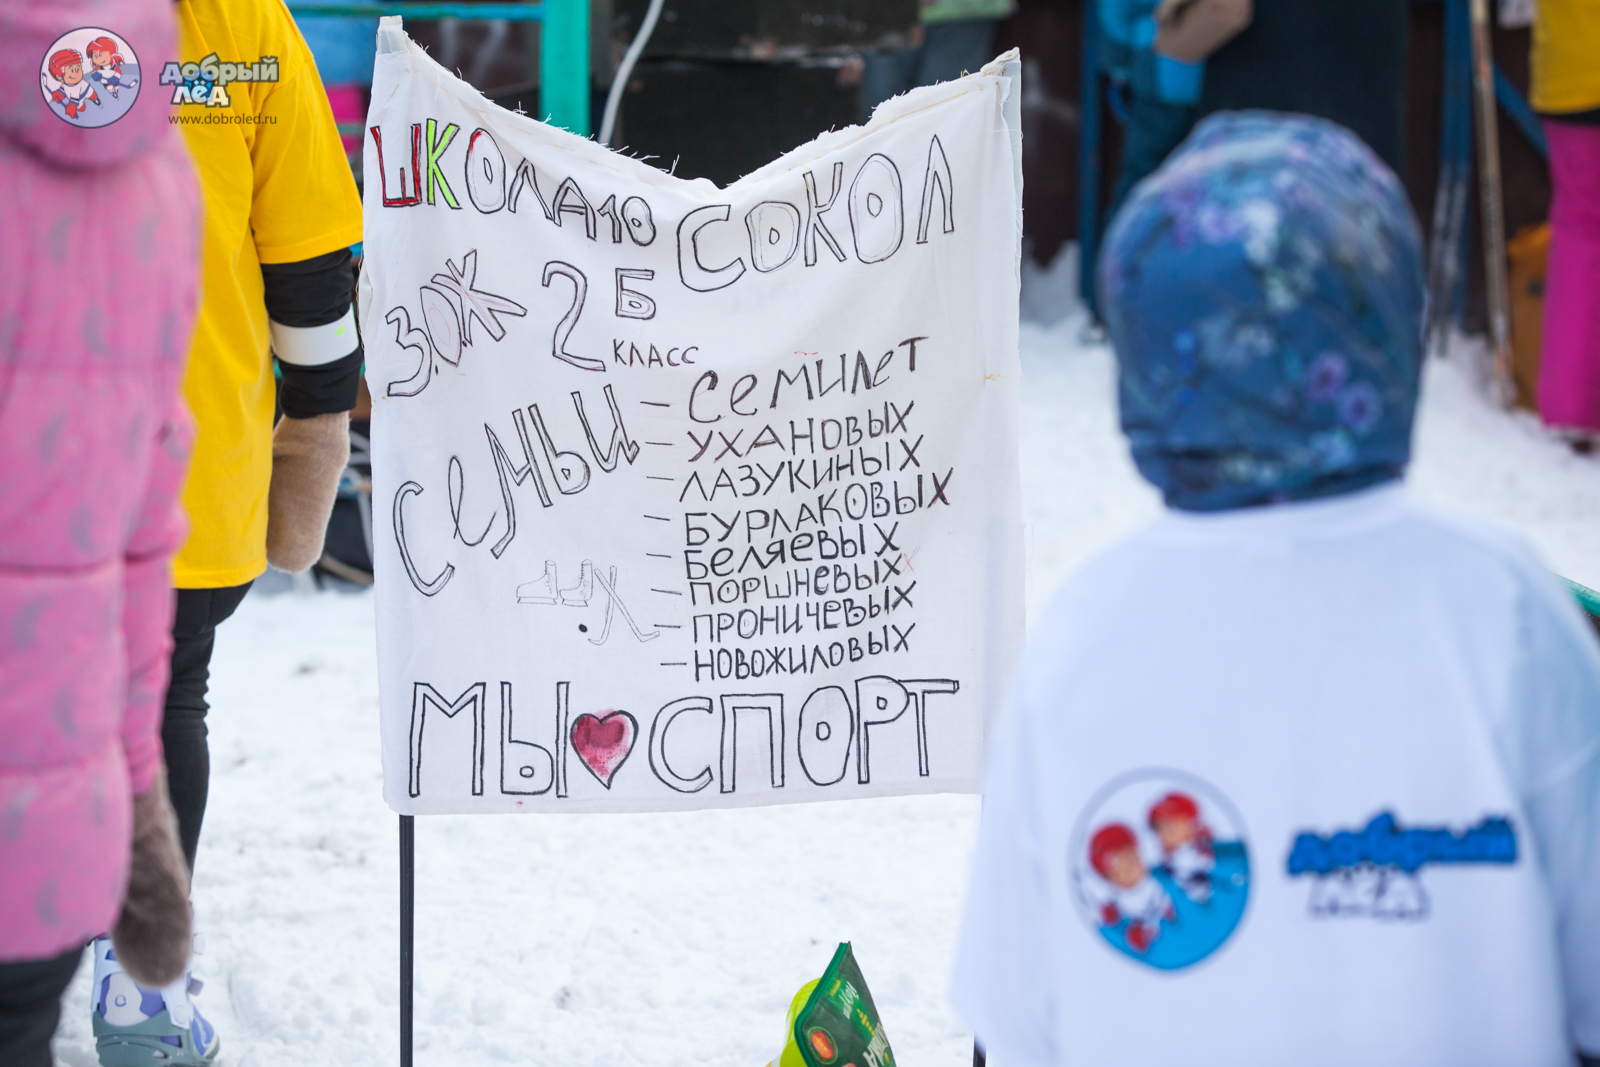 добрый
лёд
www.dobroled.ru
ШКОЛА 10 СОКОЛ
ЗОЖ 2 Б
КЛАСС
СЕМЬИ
— СЕМИЛЕТ
— УХАНОВЫХ
— ЛАЗУКИНЫХ
— БУРЛАКОВЫХ
— БЕЛЯЕВЫХ
— ПОРШНЕВЫХ
— ПРОНИЧЕВЫХ
— НОВОЖИЛОВЫХ
МЫ ❤ СПОРТ
добрый
лёд